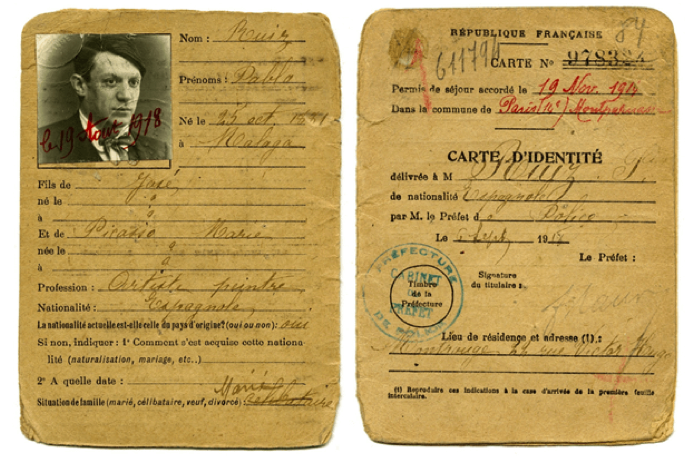 Nom : Ruiz
Prénoms : Pablo
Né le 25 oct. 1881
à Malaga
le 19 Aout 1918
Fils de José
né le
à
Et de Picasso Marie
née le
à
Profession : Artiste peintre
Nationalité : Espagnole
La nationalité actuelle est-elle celle du pays d'origine? (oui ou non) : oui
Si non, indiquer : 1° Comment s'est acquise cette nationa-
lité (naturalisation, mariage, etc..)
2° A quelle date :
Marié
Situation de famille (marié, célibataire, veuf, divorcé) : Célibataire
84
RÉPUBLIQUE FRANÇAISE
611794
CARTE No
Permis de séjour accordé le 19 Nov. 191
Dans la commune de Paris Montparnasse
CARTE D'IDENTITÉ
délivrée à M Ruiz P.
de nationalité Espagnole
par M. le Préfet de Police
Le 191
Le Préfet :
PRÉFECTURE
CABINET
DU
PRÉFET
DE POLICE
Timbre
de la
Préfecture
Signature
du titulaire :
Lieu de résidence et adresse (1) :
Montrouge 22 rue Victor Hugo
(1) Reproduire ces indications à la case d'arrivée de la première feuille
intercalaire.